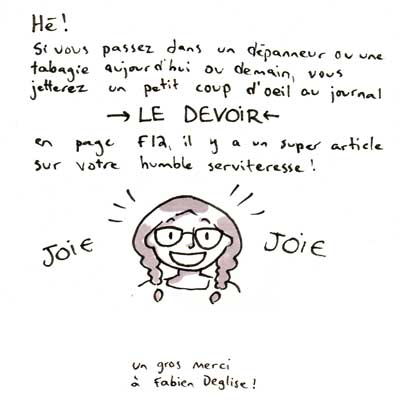 Hé!
Si vous passez dans un dépanneur ou une
tabagie aujourd'hui ou demain, vous
jetterez un petit coup d'oeil au journal
→ LE DEVOIR ←
en page F12, il y a un super article
sur votre humble serviteresse!
JOIE
JOIE
un gros merci
à Fabien Deglise!